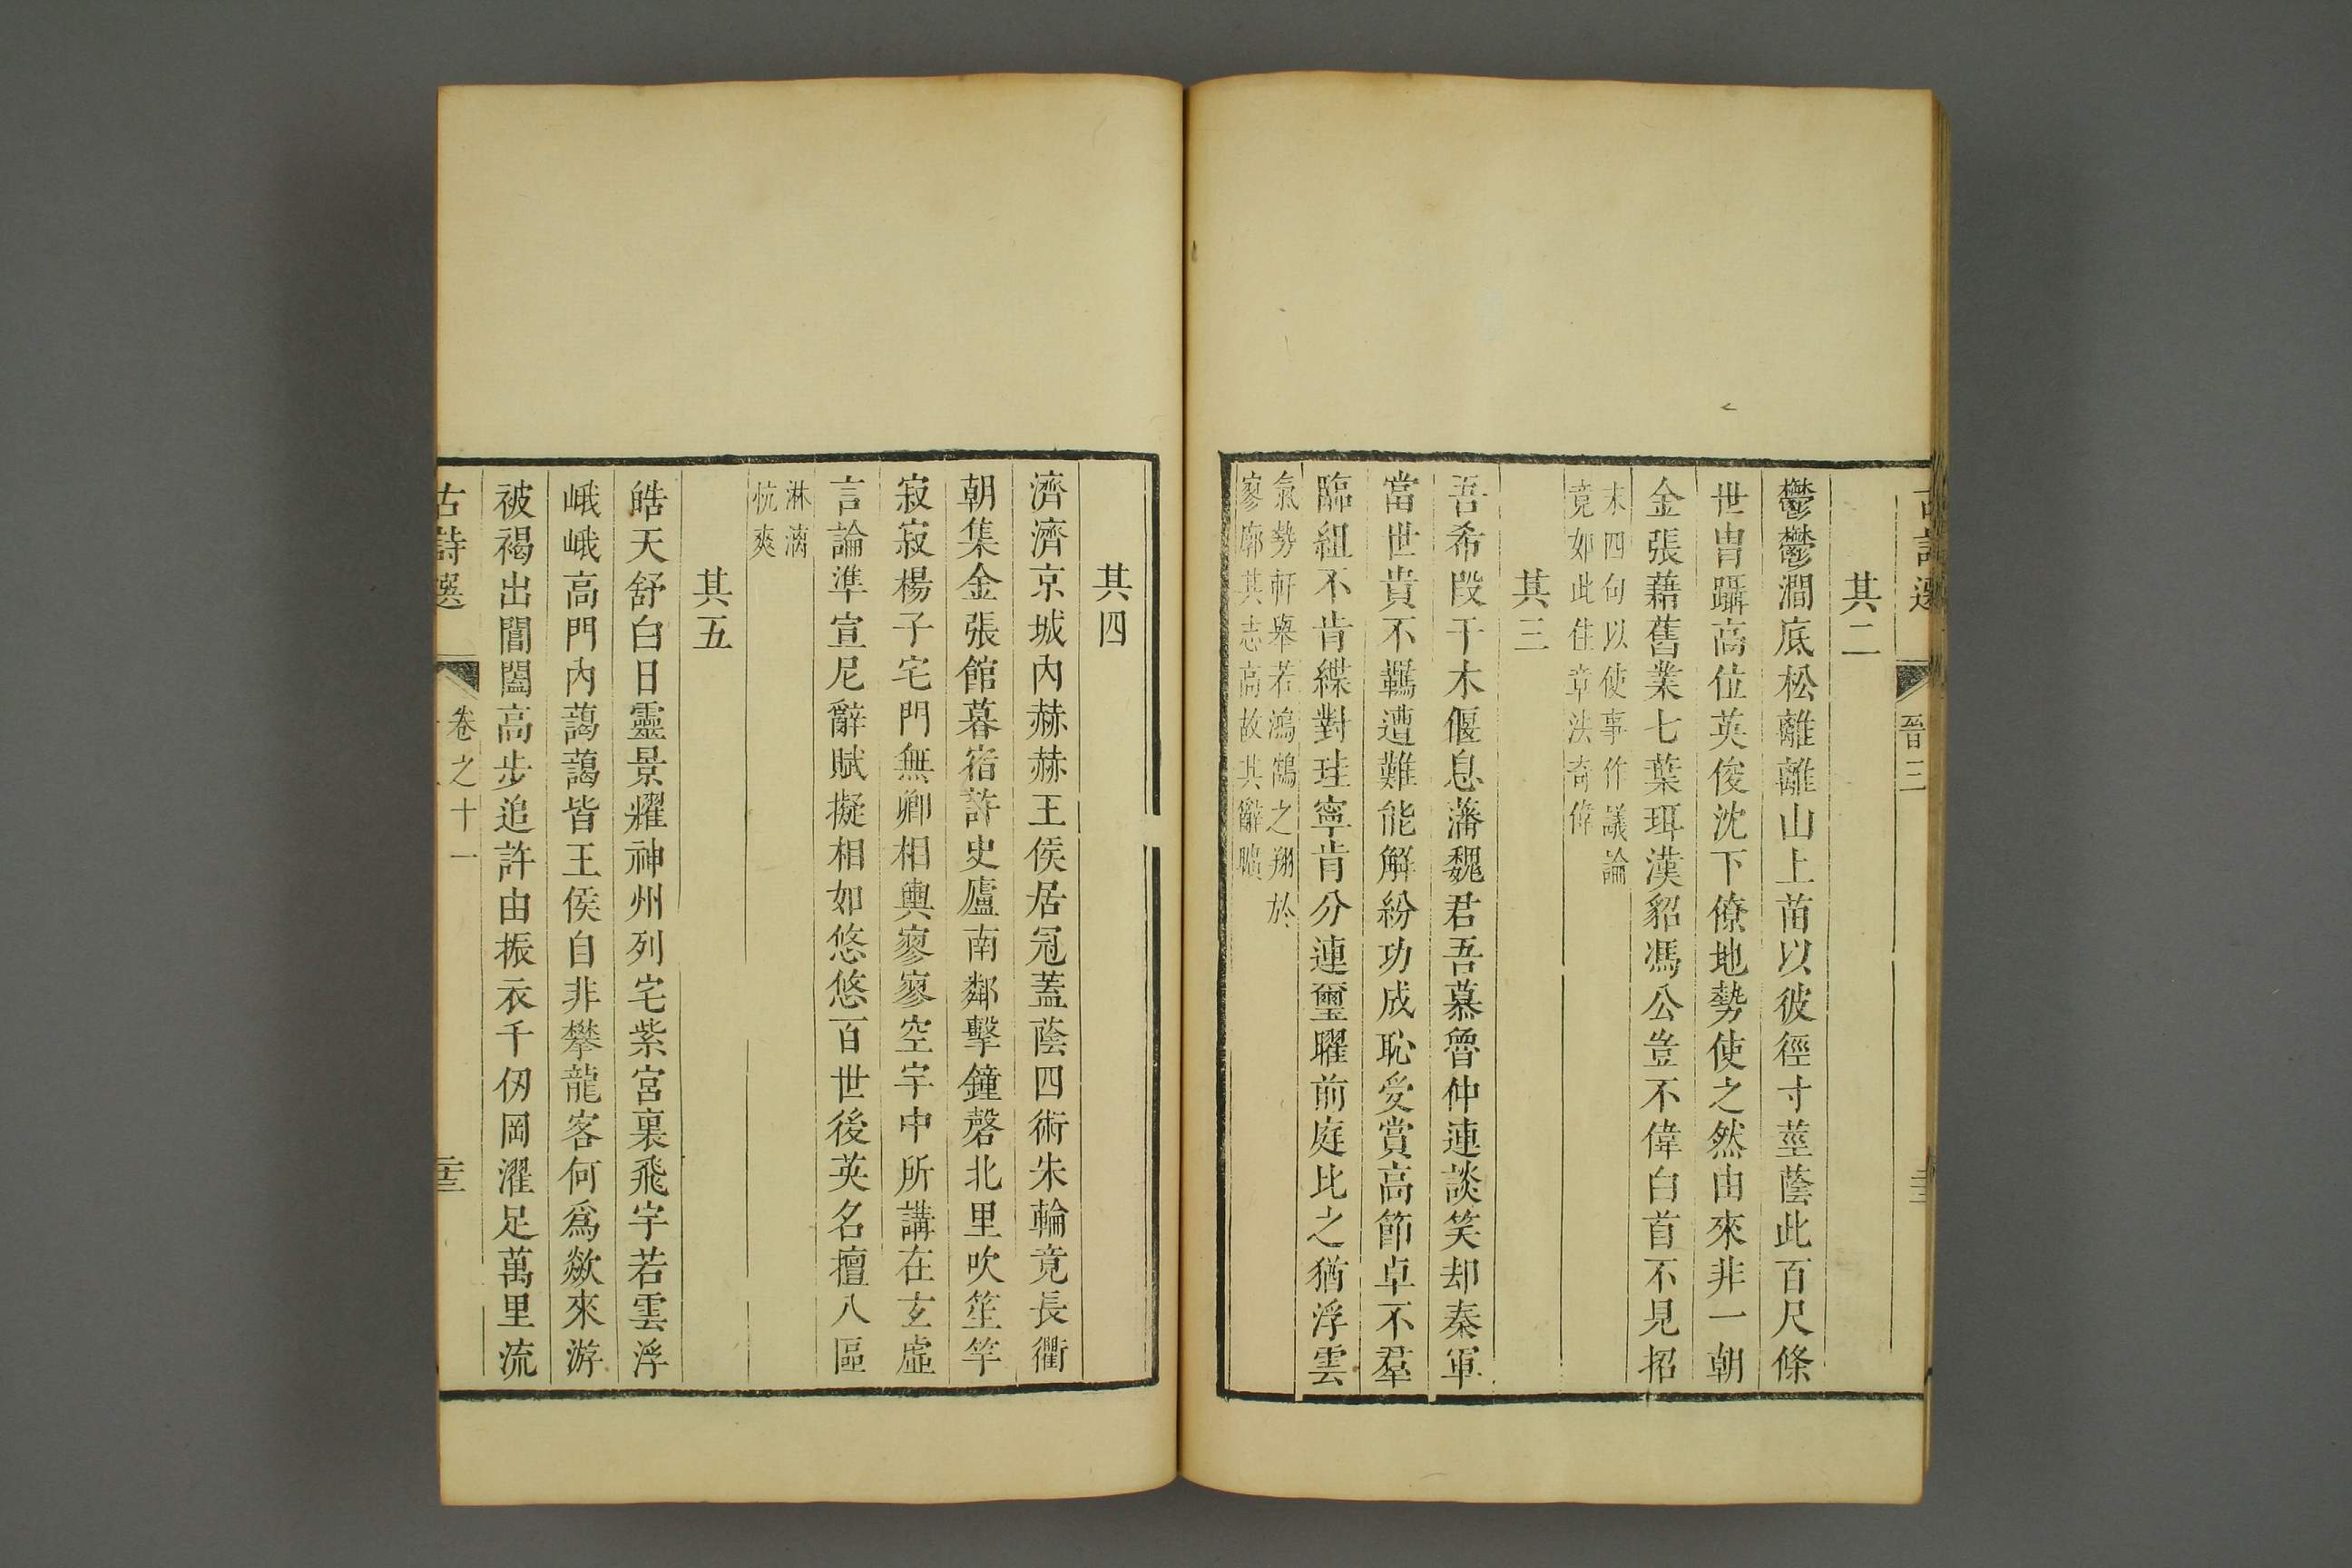 古詩選
晉三
其二
鬱鬱澗底松離離山上苗以彼徑寸莖蔭此百尺條
世冑躡高位英俊沈下僚地勢使之然由來非一朝
金張藉舊業七葉珥漢貂馮公豈不偉白首不見招
末四句以使事作議論
竟如此住章法奇偉
其三
吾希段干木偃息藩魏君吾慕魯仲連談笑却秦軍
當世貴不羈遭難能解紛功成恥受賞高節卓不羣
臨組不肯緤對珪寧肯分連璽曜前庭比之猶浮雲
氣勢軒舉若鴻鵠之翔於
寥廓其志高故其辭曠
其四
濟濟京城內赫赫王侯居冠蓋蔭四術朱輪竟長衢
朝集金張館暮宿許史廬南鄰擊鐘磬北里吹笙竽
寂寂楊子宅門無卿相輿寥寥空宇中所講在玄虛
言論準宣尼辭賦擬相如悠悠百世後英名擅八區
淋漓
忼爽
其五
皓天舒白日靈景耀神州列宅紫宮裏飛宇若雲浮
峨峨高門內藹藹皆王侯自非攀龍客何爲歘來游
被褐出閶闔高步追許由振衣千仞岡濯足萬里流
古詩選
卷之十一